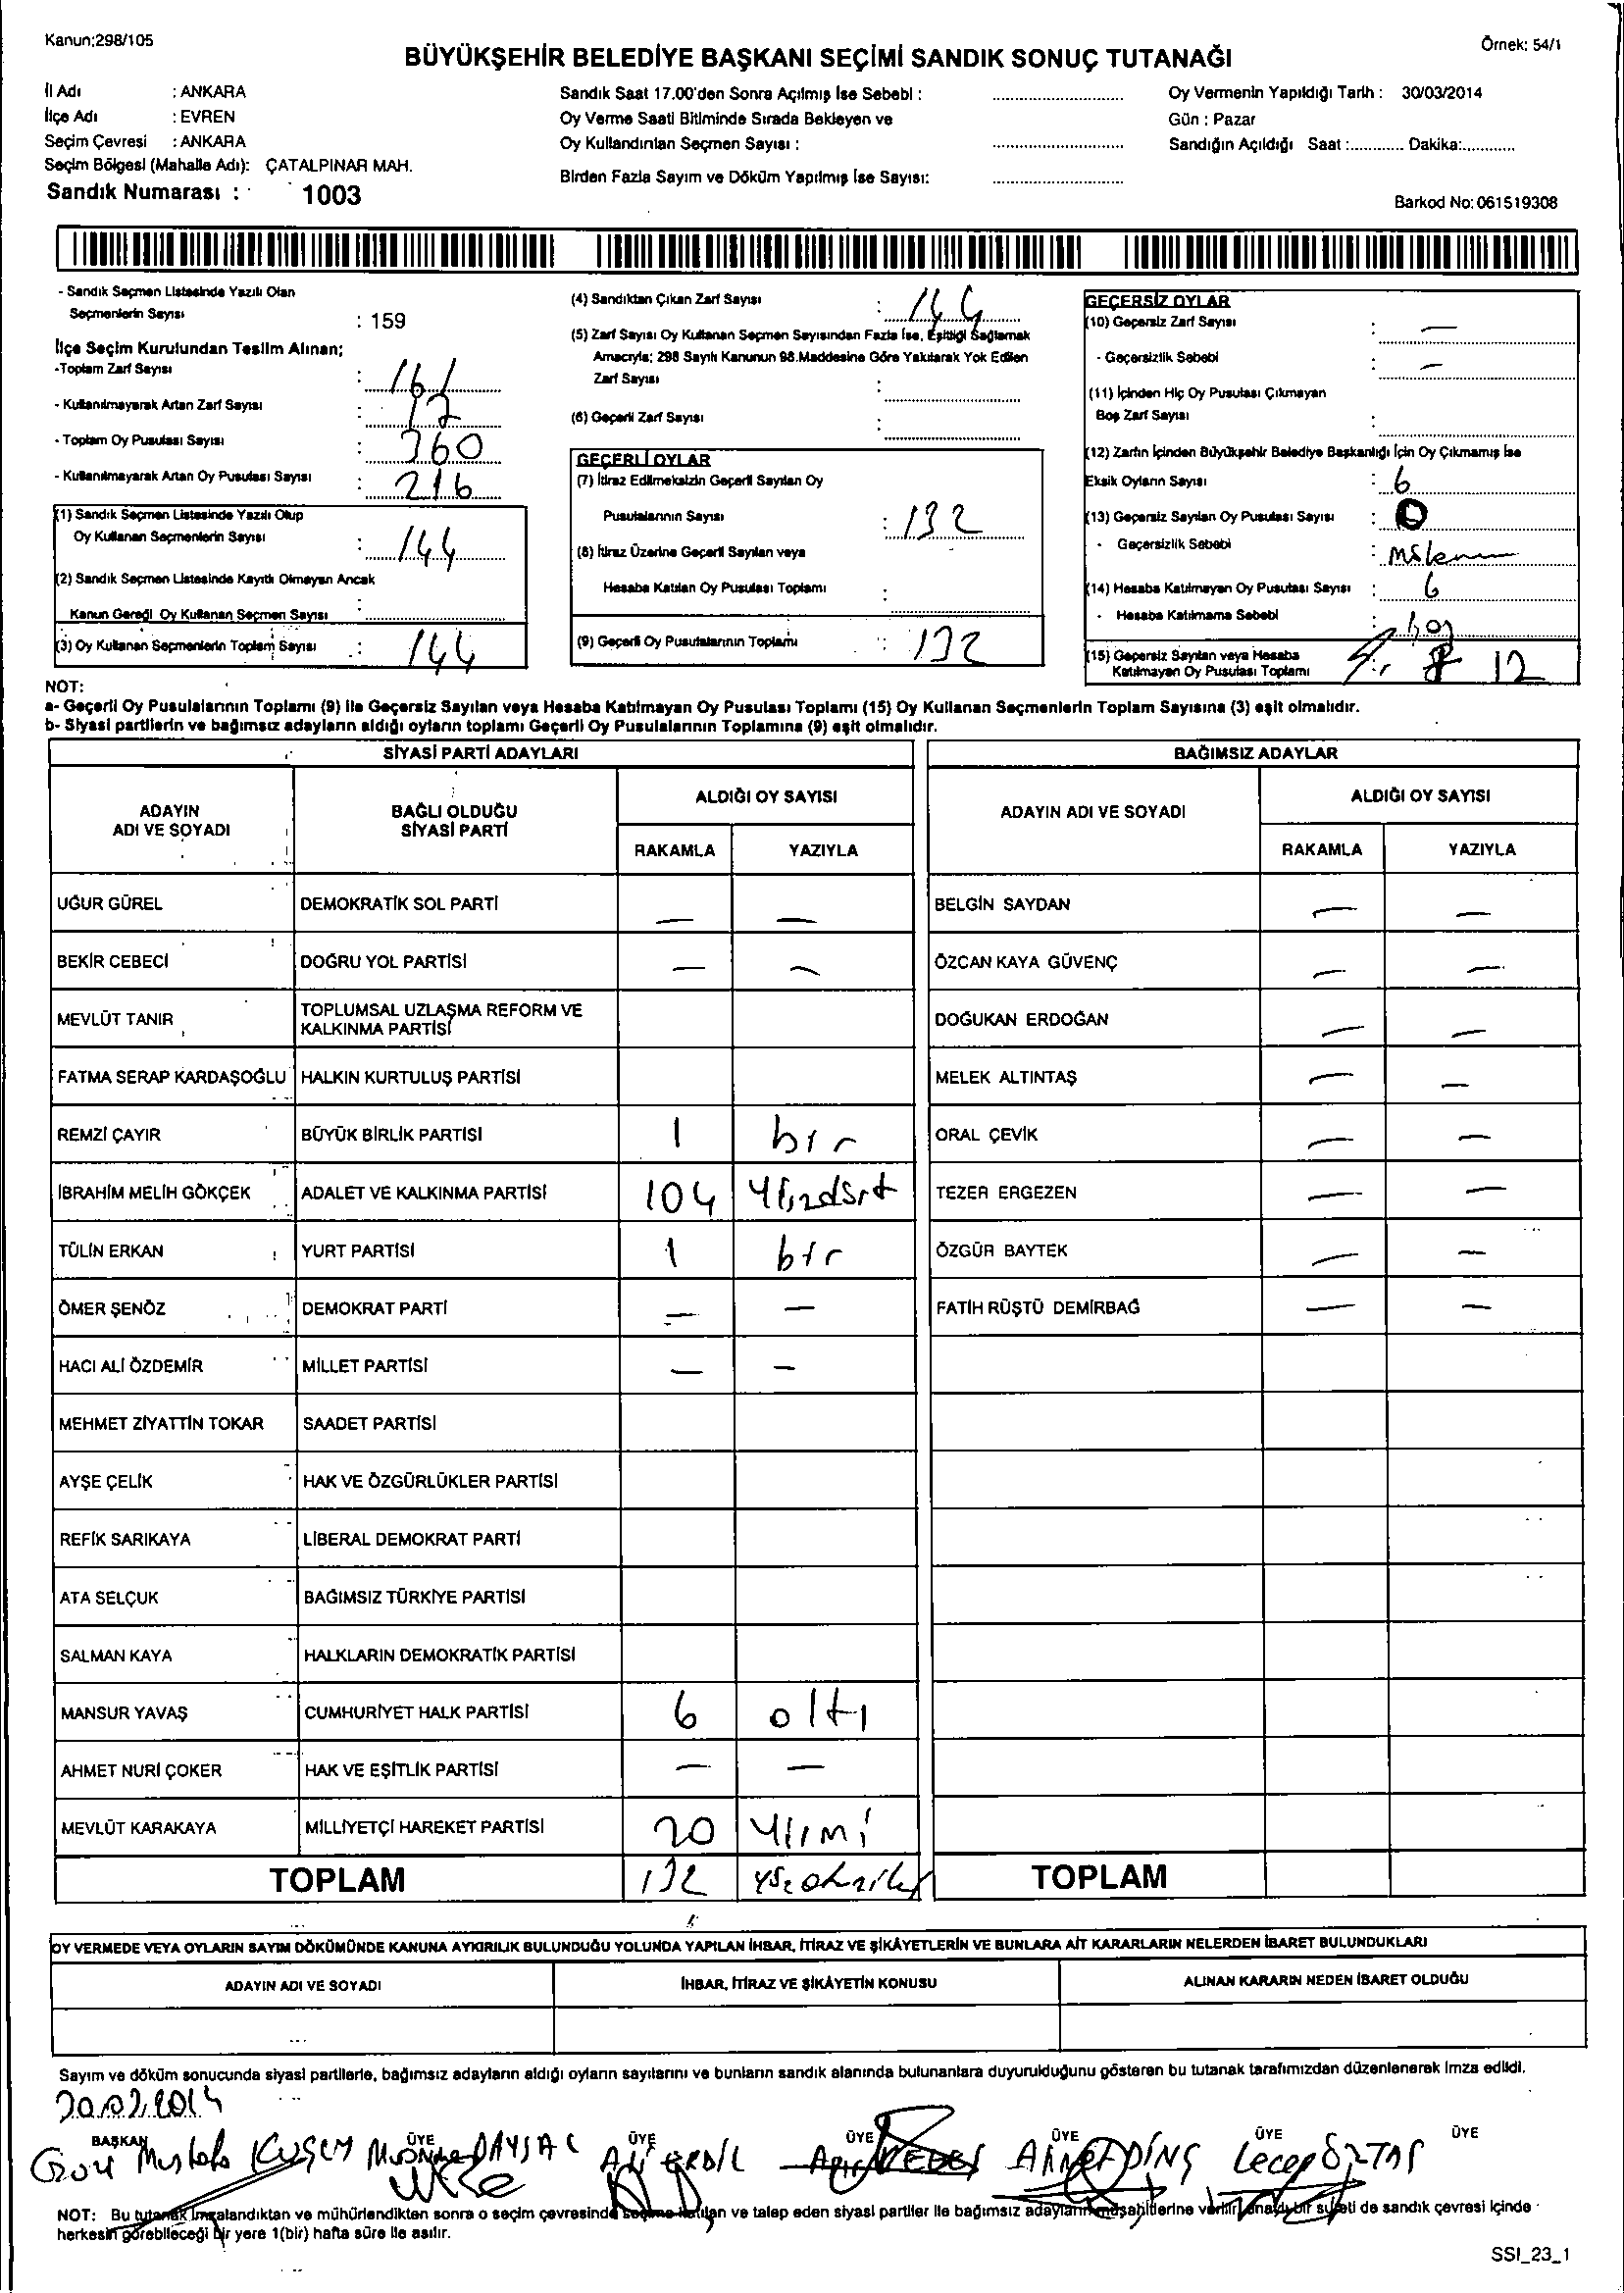 Kanun;298/105
Örnek: 54/1
BÜYÜKŞEHİR BELEDİYE BAŞKANI SEÇİMİ SANDIK SONUÇ TUTANAĞI
İl Adı : ANKARA
İlçe Adı : EVREN
Seçim Çevresi : ANKARA
Seçim Bölgesi (Mahalle Adı): ÇATALPINAR MAH.
Sandık Numarası : 1003
Sandık Saat 17.00'den Sonra Açılmış İse Sebebi :
Oy Verme Saati Bitiminde Sırada Bekleyen ve
Oy Kullandırılan Seçmen Sayısı :
Birden Fazla Sayım ve Döküm Yapılmış İse Sayısı:
Oy Vermenin Yapıldığı Tarih : 30/03/2014
Gün : Pazar
Sandığın Açıldığı Saat :............ Dakika:............
Barkod No: 061519308
- Sandık Seçmen Listesinde Yazılı Olan
Seçmenlerin Sayısı : 159
İlçe Seçim Kurulundan Teslim Alınan;
-Toplam Zarf Sayısı : 161
- Kullanılmayarak Artan Zarf Sayısı : 17
- Toplam Oy Pusulası Sayısı : 360
- Kullanılmayarak Artan Oy Pusulası Sayısı : 216
(1) Sandık Seçmen Listesinde Yazılı Olup
Oy Kullanan Seçmenlerin Sayısı : 144
(2) Sandık Seçmen Listesinde Kayıtlı Olmayan Ancak
Kanun Gereği Oy Kullanan Seçmen Sayısı :
(3) Oy Kullanan Seçmenlerin Toplam Sayısı : 144
(4) Sandıktan Çıkan Zarf Sayısı : 144
(5) Zarf Sayısı Oy Kullanan Seçmen Sayısından Fazla İse, Eşitliği Sağlamak
Amacıyla; 298 Sayılı Kanunun 98.Maddesine Göre Yakılarak Yok Edilen
Zarf Sayısı :
(6) Geçerli Zarf Sayısı :
GEÇERLİ OYLAR
(7) İtiraz Edilmeksizin Geçerli Sayılan Oy
Pusulalarının Sayısı : 132
(8) İtiraz Üzerine Geçerli Sayılan veya
Hesaba Katılan Oy Pusulası Toplamı :
(9) Geçerli Oy Pusulalarının Toplamı : 132
GEÇERSİZ OYLAR
(10) Geçersiz Zarf Sayısı : —
- Geçersizlik Sebebi : —
(11) İçinden Hiç Oy Pusulası Çıkmayan
Boş Zarf Sayısı :
(12) Zarfın İçinden Büyükşehir Belediye Başkanlığı İçin Oy Çıkmamış İse
Eksik Oyların Sayısı : 6
(13) Geçersiz Sayılan Oy Pusulası Sayısı :
- Geçersizlik Sebebi :
(14) Hesaba Katılmayan Oy Pusulası Sayısı : 6
- Hesaba Katılmama Sebebi : boş
(15) Geçersiz Sayılan veya Hesaba
Katılmayan Oy Pusulası Toplamı 12
NOT:
a- Geçerli Oy Pusulalarının Toplamı (9) ile Geçersiz Sayılan veya Hesaba Katılmayan Oy Pusulası Toplamı (15) Oy Kullanan Seçmenlerin Toplam Sayısına (3) eşit olmalıdır.
b- Siyasi partilerin ve bağımsız adayların aldığı oyların toplamı Geçerli Oy Pusulalarının Toplamına (9) eşit olmalıdır.
SİYASİ PARTİ ADAYLARI
BAĞIMSIZ ADAYLAR
ADAYIN ADI VE SOYADI
BAĞLI OLDUĞU SİYASİ PARTİ
ALDIĞI OY SAYISI
ADAYIN ADI VE SOYADI
ALDIĞI OY SAYISI
RAKAMLA YAZIYLA
RAKAMLA YAZIYLA
UĞUR GÜREL DEMOKRATİK SOL PARTİ — — BELGİN SAYDAN — —
BEKİR CEBECİ DOĞRU YOL PARTİSİ — — ÖZCAN KAYA GÜVENÇ — —
MEVLÜT TANIR TOPLUMSAL UZLAŞMA REFORM VE KALKINMA PARTİSİ DOĞUKAN ERDOĞAN — —
FATMA SERAP KARDAŞOĞLU HALKIN KURTULUŞ PARTİSİ MELEK ALTINTAŞ — —
REMZİ ÇAYIR BÜYÜK BİRLİK PARTİSİ 1 bir ORAL ÇEVİK — —
İBRAHİM MELİH GÖKÇEK ADALET VE KALKINMA PARTİSİ 104 Yüzdört TEZER ERGEZEN — —
TÜLİN ERKAN YURT PARTİSİ 1 bir ÖZGÜR BAYTEK — —
ÖMER ŞENÖZ DEMOKRAT PARTİ — — FATİH RÜŞTÜ DEMİRBAĞ — —
HACI ALİ ÖZDEMİR MİLLET PARTİSİ — —
MEHMET ZİYATTİN TOKAR SAADET PARTİSİ
AYŞE ÇELİK HAK VE ÖZGÜRLÜKLER PARTİSİ
REFİK SARIKAYA LİBERAL DEMOKRAT PARTİ
ATA SELÇUK BAĞIMSIZ TÜRKİYE PARTİSİ
SALMAN KAYA HALKLARIN DEMOKRATİK PARTİSİ
MANSUR YAVAŞ CUMHURİYET HALK PARTİSİ 6 altı
AHMET NURİ ÇOKER HAK VE EŞİTLİK PARTİSİ — —
MEVLÜT KARAKAYA MİLLİYETÇİ HAREKET PARTİSİ 20 Yirmi
TOPLAM 132 TOPLAM
OY VERMEDE VEYA OYLARIN SAYIM DÖKÜMÜNDE KANUNA AYKIRILIK BULUNDUĞU YOLUNDA YAPILAN İHBAR, İTİRAZ VE ŞİKÂYETLERİN VE BUNLARA AİT KARARLARIN NELERDEN İBARET BULUNDUKLARI
ADAYIN ADI VE SOYADI İHBAR, İTİRAZ VE ŞİKÂYETİN KONUSU ALINAN KARARIN NEDEN İBARET OLDUĞU
Sayım ve döküm sonucunda siyasi partilerle, bağımsız adayların aldığı oyların sayılarını ve bunların sandık alanında bulunanlara duyurulduğunu gösteren bu tutanak tarafımızdan düzenlenerek imza edildi.
BAŞKAN ÜYE ÜYE ÜYE ÜYE ÜYE ÜYE
Mustafa Ali ERDİL AHMET DİNÇ Recep ÖZTAŞ
NOT: Bu tutanak imzalandıktan ve mühürlendikten sonra o seçim çevresinde seçime katılan ve talep eden siyasi partiler ile bağımsız adayların müşahitlerine verilir, onaylı bir sureti de sandık çevresi içinde
herkesin görebileceği bir yere 1(bir) hafta süre ile asılır.
SSI_23_1